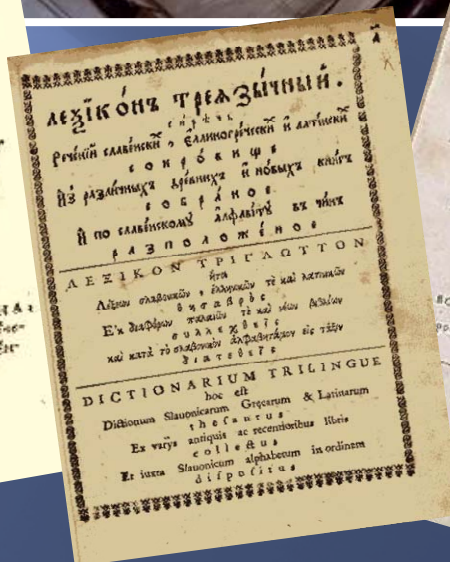 лезїко́нъ трєѧзы́чный.
си́рѣчь
Рече́нїй славе́нскихъ, є҆ллиногре́ческихъ и҆ лати́нскихъ
сокро́вище
И҆з̾ разли́чныхъ дре́внихъ и҆ но́выхъ кни́гъ
собра́ное
И҆ по славе́нскому а҆лфави́тꙋ въ чи́нъ
разположе́ное
ΛΕΞΙΚΟΝ ΤΡΙΓΛΩΤΤΟΝ
ἤτοι
Λέξεων σλαβονικῶν, ἑλληνικῶν τὲ καὶ λατινικῶν
θησαυρὸς
Ἐκ διαφόρων παλαιῶν τὲ καὶ νέων βιβλίων
συλλεχθεὶς
καὶ κατὰ τὸ σλαβονικὸν ἀλφαβητάριον εἰς τάξιν
διατεθεὶς
DICTIONARIUM TRILINGUE
hoc est
Dictionum Slauonicarum Gręcarum & Latinarum
thesaurus
Ex varijs antiquis ac recentioribus libris
collectus
Et iuxta Slauonicum alphabetum in ordinem
dispositus